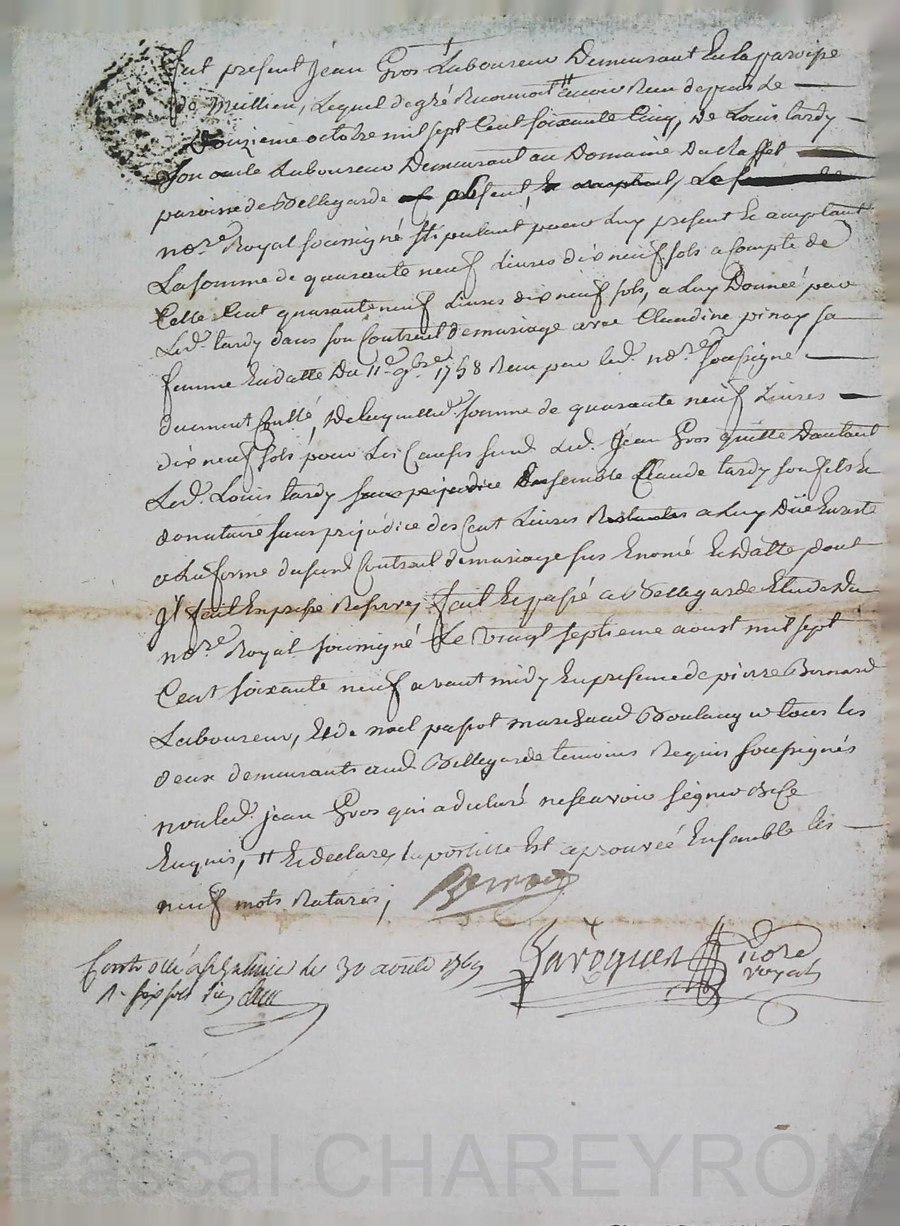 fut présent jean Gros Laboureur Demeurant En la paroisse
de meillieu, Lequel de gré Reconnoit avoir Reçu depuis le
onzieme octobre mil sept Cent soixante Cinq, de Louis tardy
son oncle Laboureur Demeurant au Domaine Du
paroisse de Bellegarde
no.re Royal soussigné stipulant pour Luy present Et acceptant
La somme de quarante neuf Livres dix neuf sols a compte de
Celle Cent quarante neuf Livres dix neuf sols, a Luy Donnée par
Led. tardy dans son Contrat de mariage avec Claudine pinay sa
femme En datte Du 11.e 9bre 1758 Reçu par led. no.re soussigné
duement Coullé, De laquelle d. somme de quarante neuf Livres
dix neuf sols pour Les Causes sus d. Led. jean Gros quitte D'autant
Led. Louis tardy Ensemble Claude tardy son fils Et
donataire sans prejudice des Cent Livres a Luy Düe En reste
a La forme du susd. Contrat de mariage sus Enomé En datte dont
jl fait Expresse Reserve, fait Et passé a Bellegarde Etude Du
no.re Royal soussigné Le vingt septieme aoust mil sept
Cent soixante neuf avant midy En presence de pierre Bernard
Laboureur, Et de noel papot marchand Boulanger tous les
deux demeurants aud. Bellegarde temoins Requis soussignés
non led. jean Gros qui a declaré ne scavoir signer de ce
Enquis, # Et declare, La postille Est aprouvée Ensemble les
neuf mots Raturés,
Bernard
Controllé a St Galmier le 30 aoust 1769
R. six sols
no.re
royal
Pascal CHAREYRON